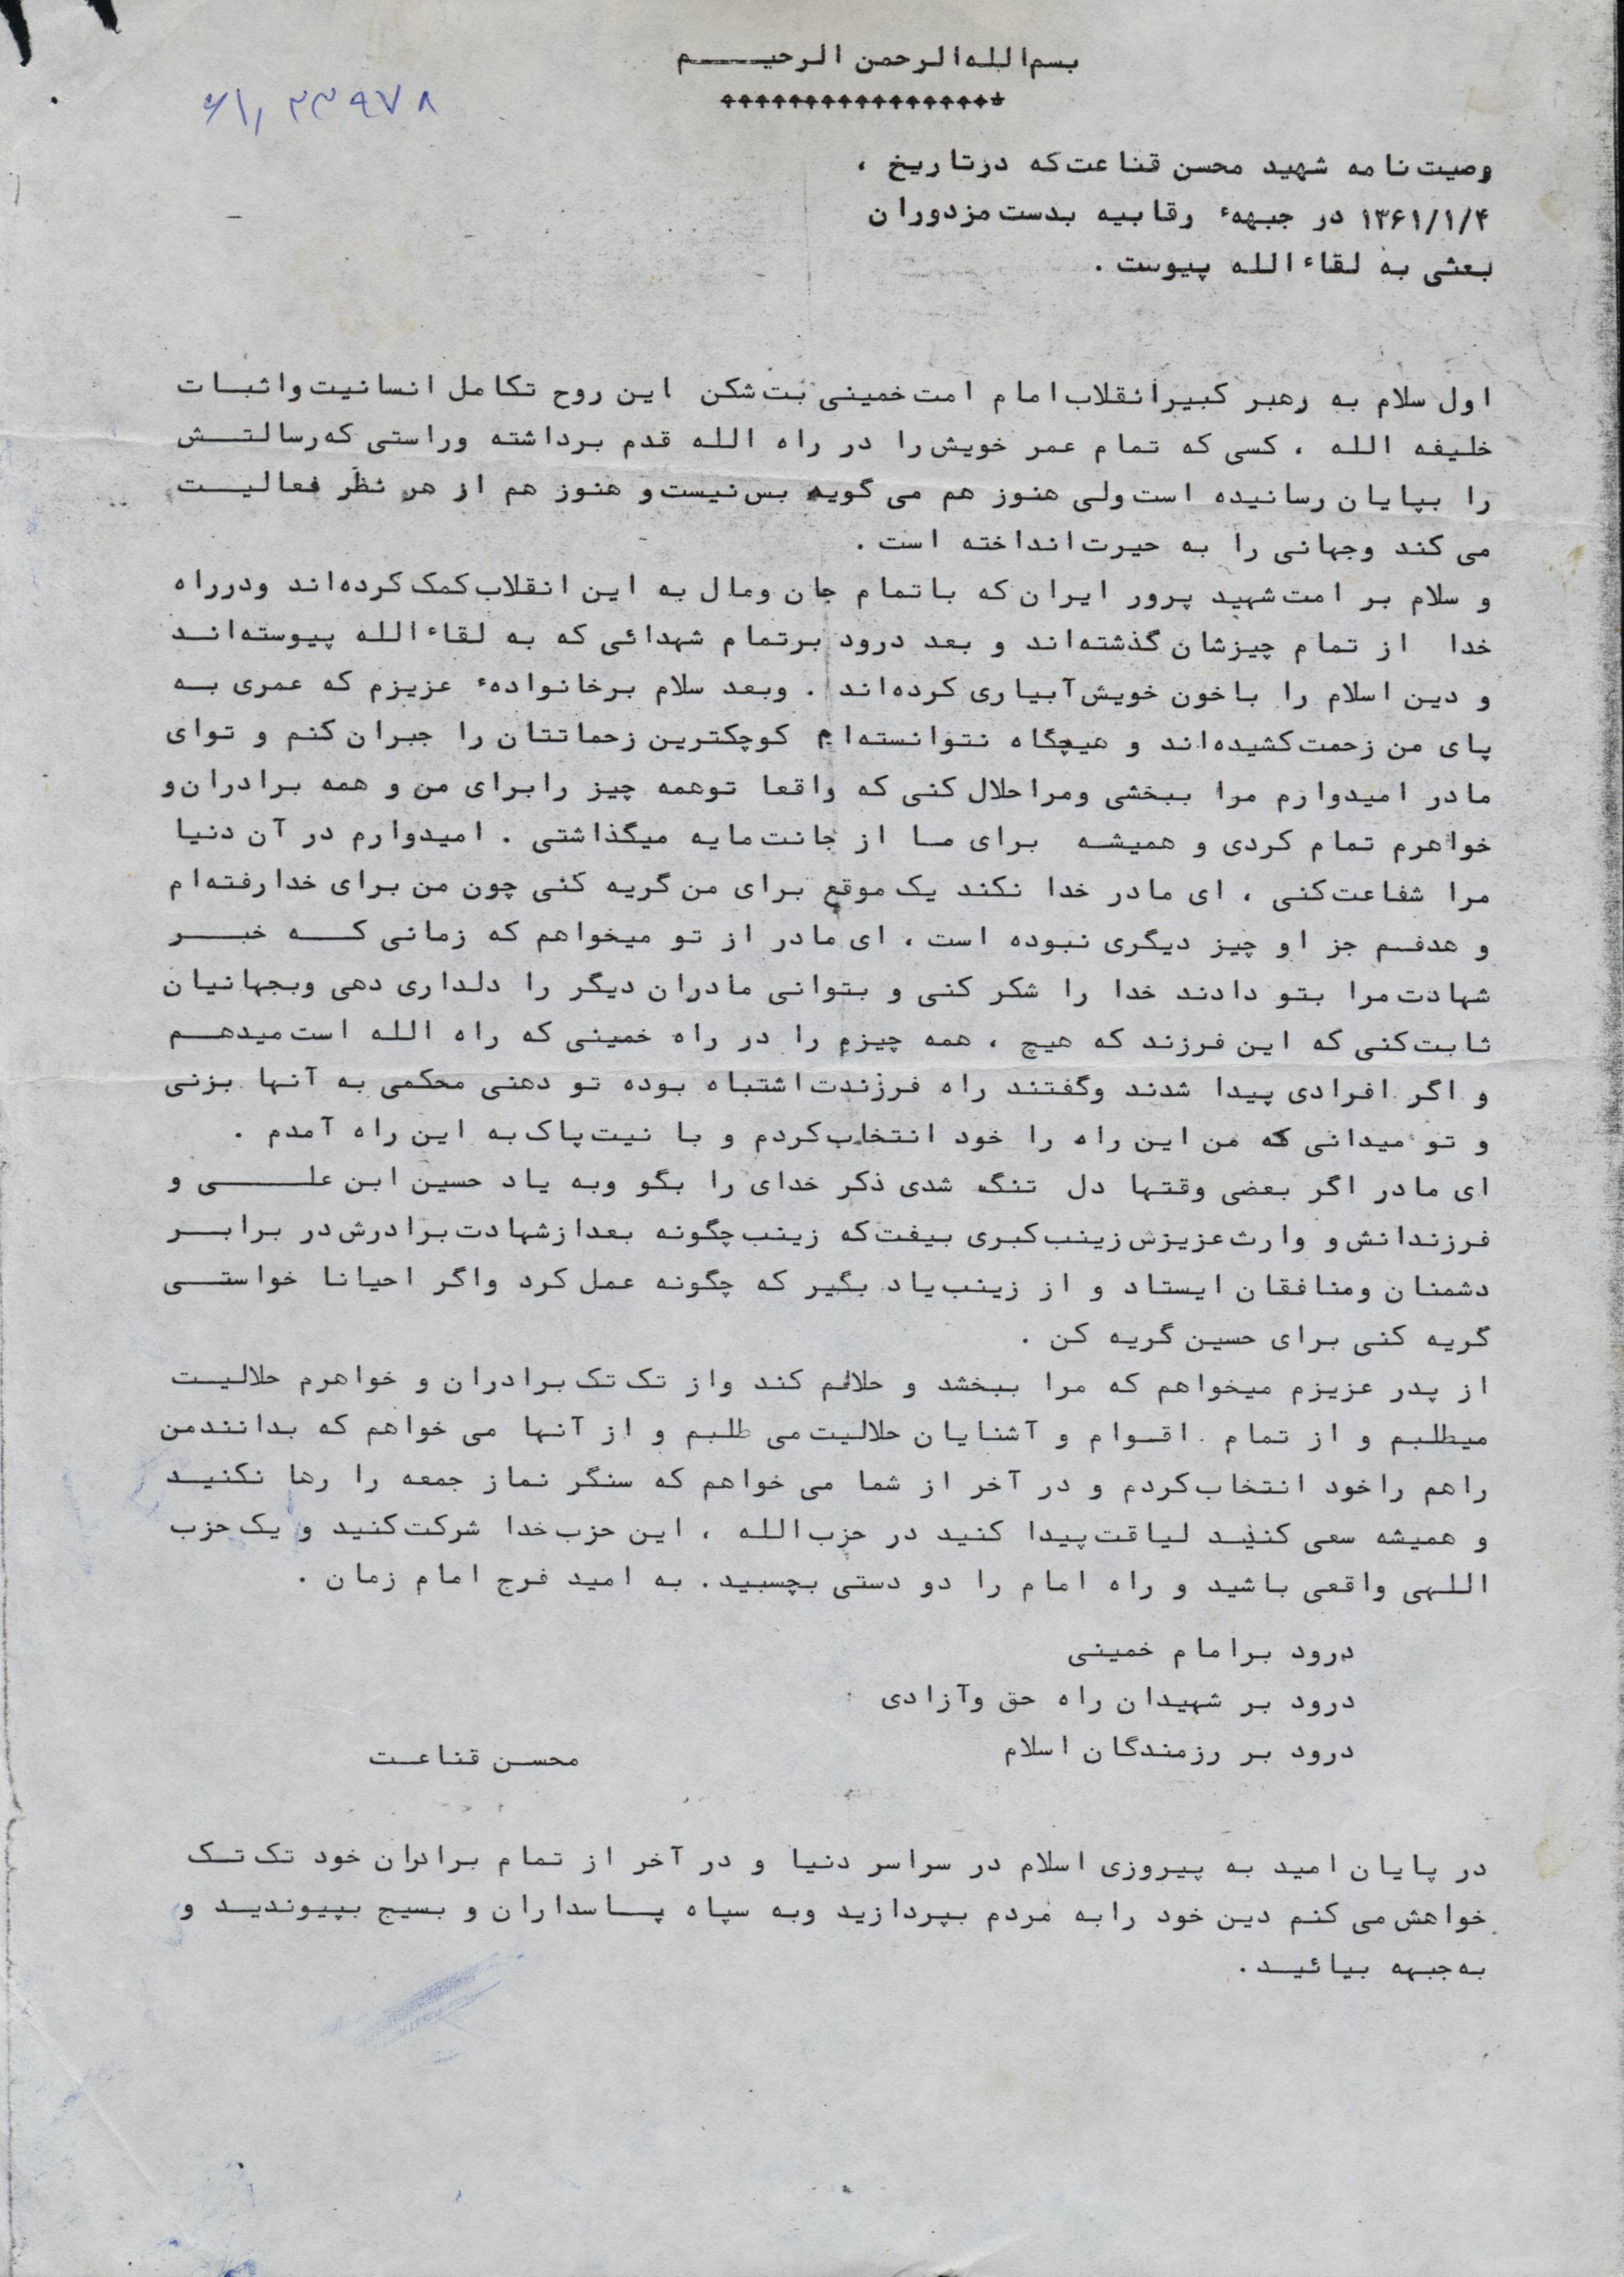 بسم الله الرحمن الرحیم
۶۱٫۲۳۹۷۸
وصیت نامه شهید محسن قناعت که در تاریخ ،
۱۳۶۱/۱/۴ در جبههء رقابیه بدست مزدوران
بعثی به لقاء الله پیوست .
اول سلام به رهبر کبیر انقلاب امام امت خمینی بت شکن این روح تکامل انسانیت و اثبات
خلیفه الله ، کسی که تمام عمر خویش را در راه الله قدم برداشته و راستی که رسالتش
را بپایان رسانیده است ولی هنوز هم می گوید بس نیست و هنوز هم از هر نظر فعالیت
می کند وجهانی را به حیرت انداخته است .
و سلام بر امت شهید پرور ایران که با تمام جان ومال به این انقلاب کمک کرده‌اند ودر راه
خدا از تمام چیزشان گذشته‌اند و بعد درود بر تمام شهدائی که به لقاء الله پیوسته‌اند
و دین اسلام را با خون خویش آبیاری کرده‌اند . وبعد سلام بر خانوادهء عزیزم که عمری به
پای من زحمت کشیده‌اند و هیچگاه نتوانسته‌ام کوچکترین زحماتتان را جبران کنم و تو ای
مادر امیدوارم مرا ببخشی ومرا حلال کنی که واقعا تو همه چیز را برای من و همه برادران و
خواهرم تمام کردی و همیشه برای ما از جانت مایه میگذاشتی . امیدوارم در آن دنیا
مرا شفاعت کنی ، ای مادر خدا نکند یک موقع برای من گریه کنی چون من برای خدا رفته‌ام
و هدفم جز او چیز دیگری نبوده است ، ای مادر از تو میخواهم که زمانی که خبر
شهادت مرا بتو دادند خدا را شکر کنی و بتوانی مادران دیگر را دلداری دهی وبجهانیان
ثابت کنی که این فرزند که هیچ ، همه چیزم را در راه خمینی که راه الله است میدهم
و اگر افرادی پیدا شدند وگفتند راه فرزندت اشتباه بوده تو دهنی محکمی به آنها بزنی
و تو میدانی که من این راه را خود انتخاب کردم و با نیت پاک به این راه آمدم .
ای مادر اگر بعضی وقتها دل تنگ شدی ذکر خدای را بگو وبه یاد حسین ابن علی و
فرزندانش و وارث عزیزش زینب کبری بیفت که زینب چگونه بعد از شهادت برادرش در برابر
دشمنان ومنافقان ایستاد و از زینب یاد بگیر که چگونه عمل کرد واگر احیانا خواستی
گریه کنی برای حسین گریه کن .
از پدر عزیزم میخواهم که مرا ببخشد و حلالم کند واز تک تک برادران و خواهرم حلالیت
میطلبم و از تمام اقوام و آشنایان حلالیت می طلبم و از آنها می خواهم که بدانند من
راهم را خود انتخاب کردم و در آخر از شما می خواهم که سنگر نماز جمعه را رها نکنید
و همیشه سعی کنید لیاقت پیدا کنید در حزب الله ، این حزب خدا شرکت کنید و یک حزب
اللهی واقعی باشید و راه امام را دو دستی بچسبید. به امید فرج امام زمان .
درود بر امام خمینی
درود بر شهیدان راه حق وآزادی
درود بر رزمندگان اسلام
محسن قناعت
در پایان امید به پیروزی اسلام در سراسر دنیا و در آخر از تمام برادران خود تک تک
خواهش می کنم دین خود را به مردم بپردازید وبه سپاه پاسداران و بسیج بپیوندید و
به جبهه بیائید .